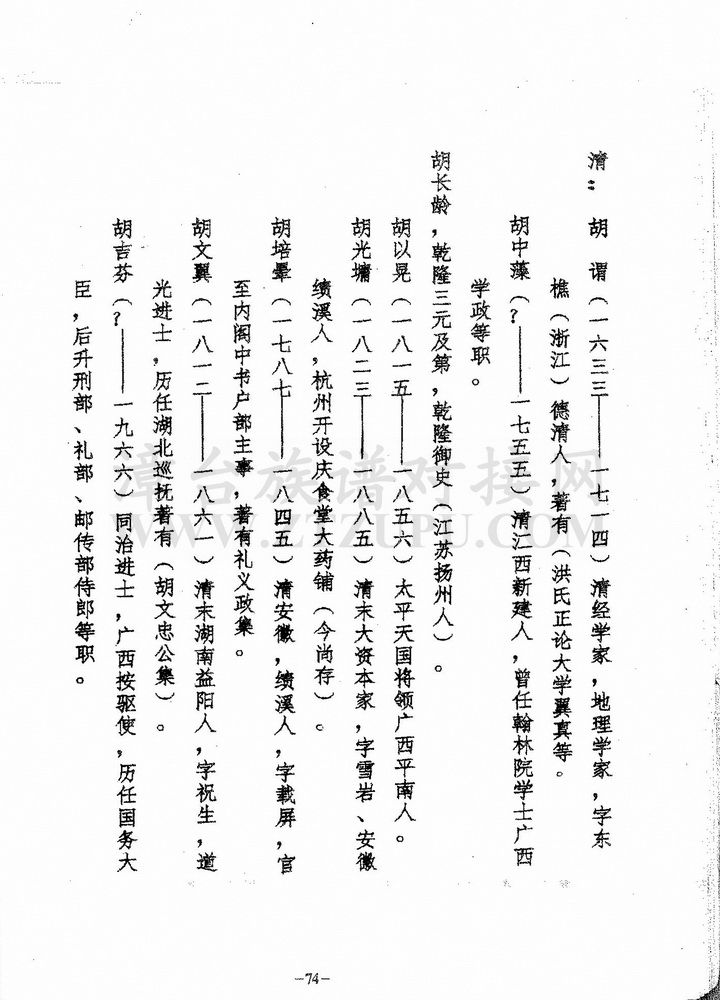 清：胡　谓（一六三三——一七一四）清经学家，地理学家，字东
樵（浙江）德清人，著有（洪氏正论大学翼真等。
胡中藻（？——一七五五）清江西新建人，曾任翰林院学士广西
学政等职。
胡长龄，乾隆三元及第，乾隆御史（江苏扬州人）。
胡以晃（一八一五——一八五六）太平天国将领广西平南人。
胡光墉（一八二三——一八八五）清末大资本家，字雪岩、安徽
绩溪人，杭州开设庆食堂大药铺（今尚存）。
胡培翚（一七八七——一八四五）清安徽，绩溪人，字载屏，官
至内阁中书户部主事，著有礼义政集。
胡文翼（一八一二——一八六一）清末湖南益阳人，字祝生，道
光进士，历任湖北巡抚著有（胡文忠公集）。
胡吉芬（？——一九六六）同治进士，广西按驱使，历任国务大
臣，后升刑部、礼部、邮传部侍郎等职。
章台族谱对接网
WWW.ZTZUPU.COM
-74-